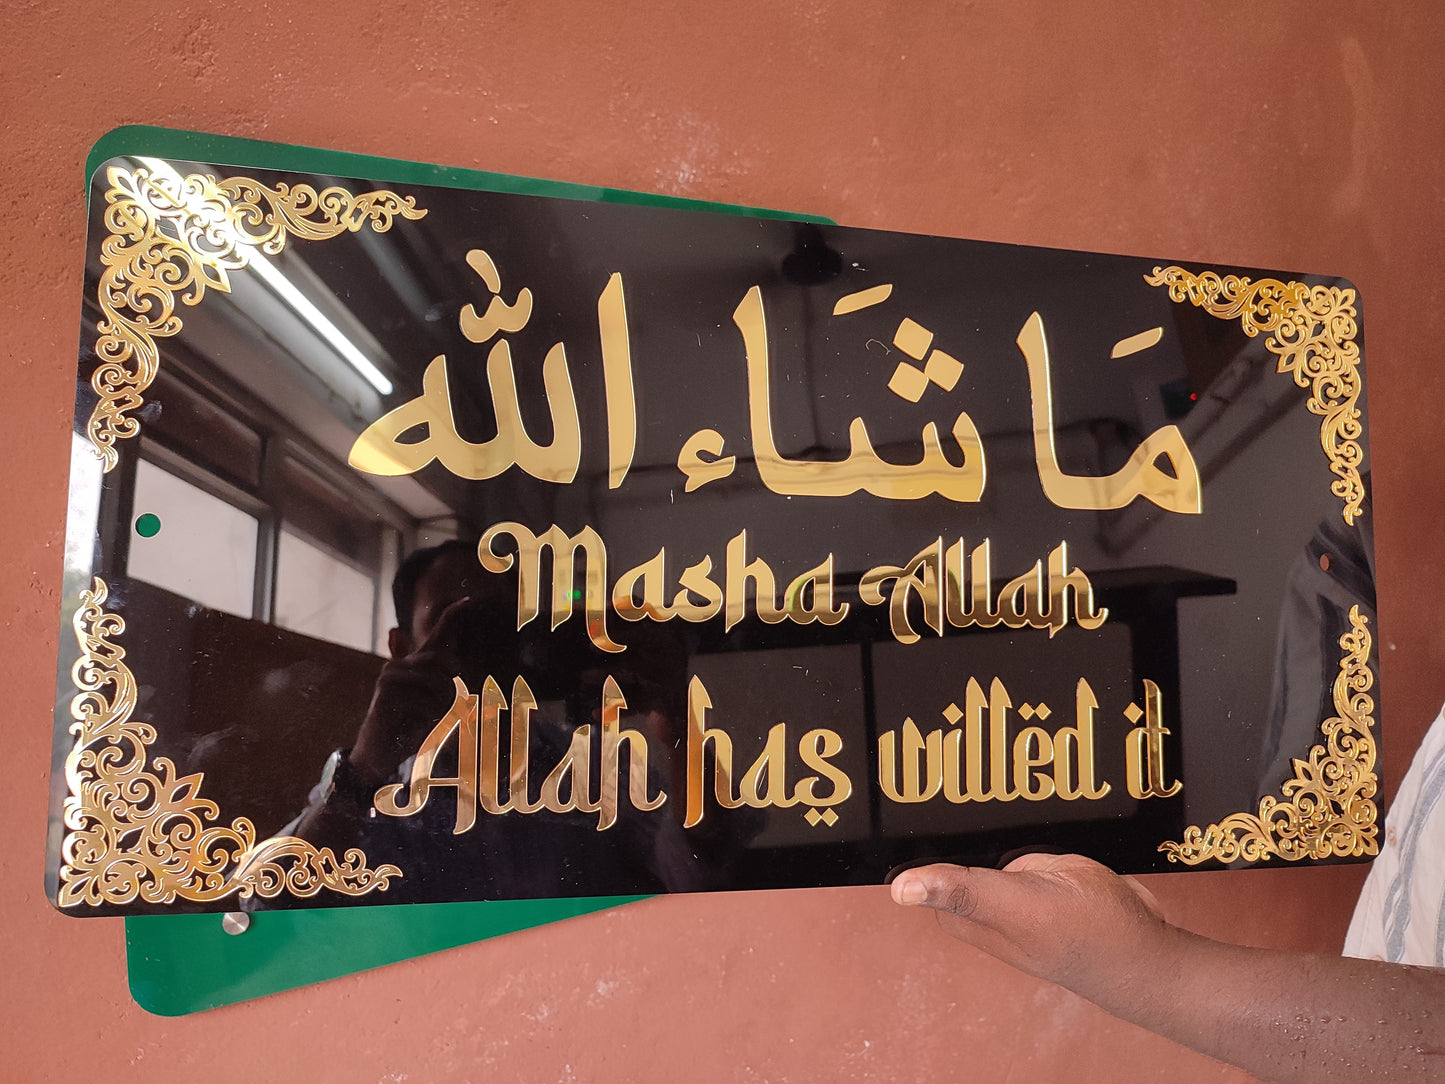 مَا شَاء الله
Masha Allah
Allah has willëd it